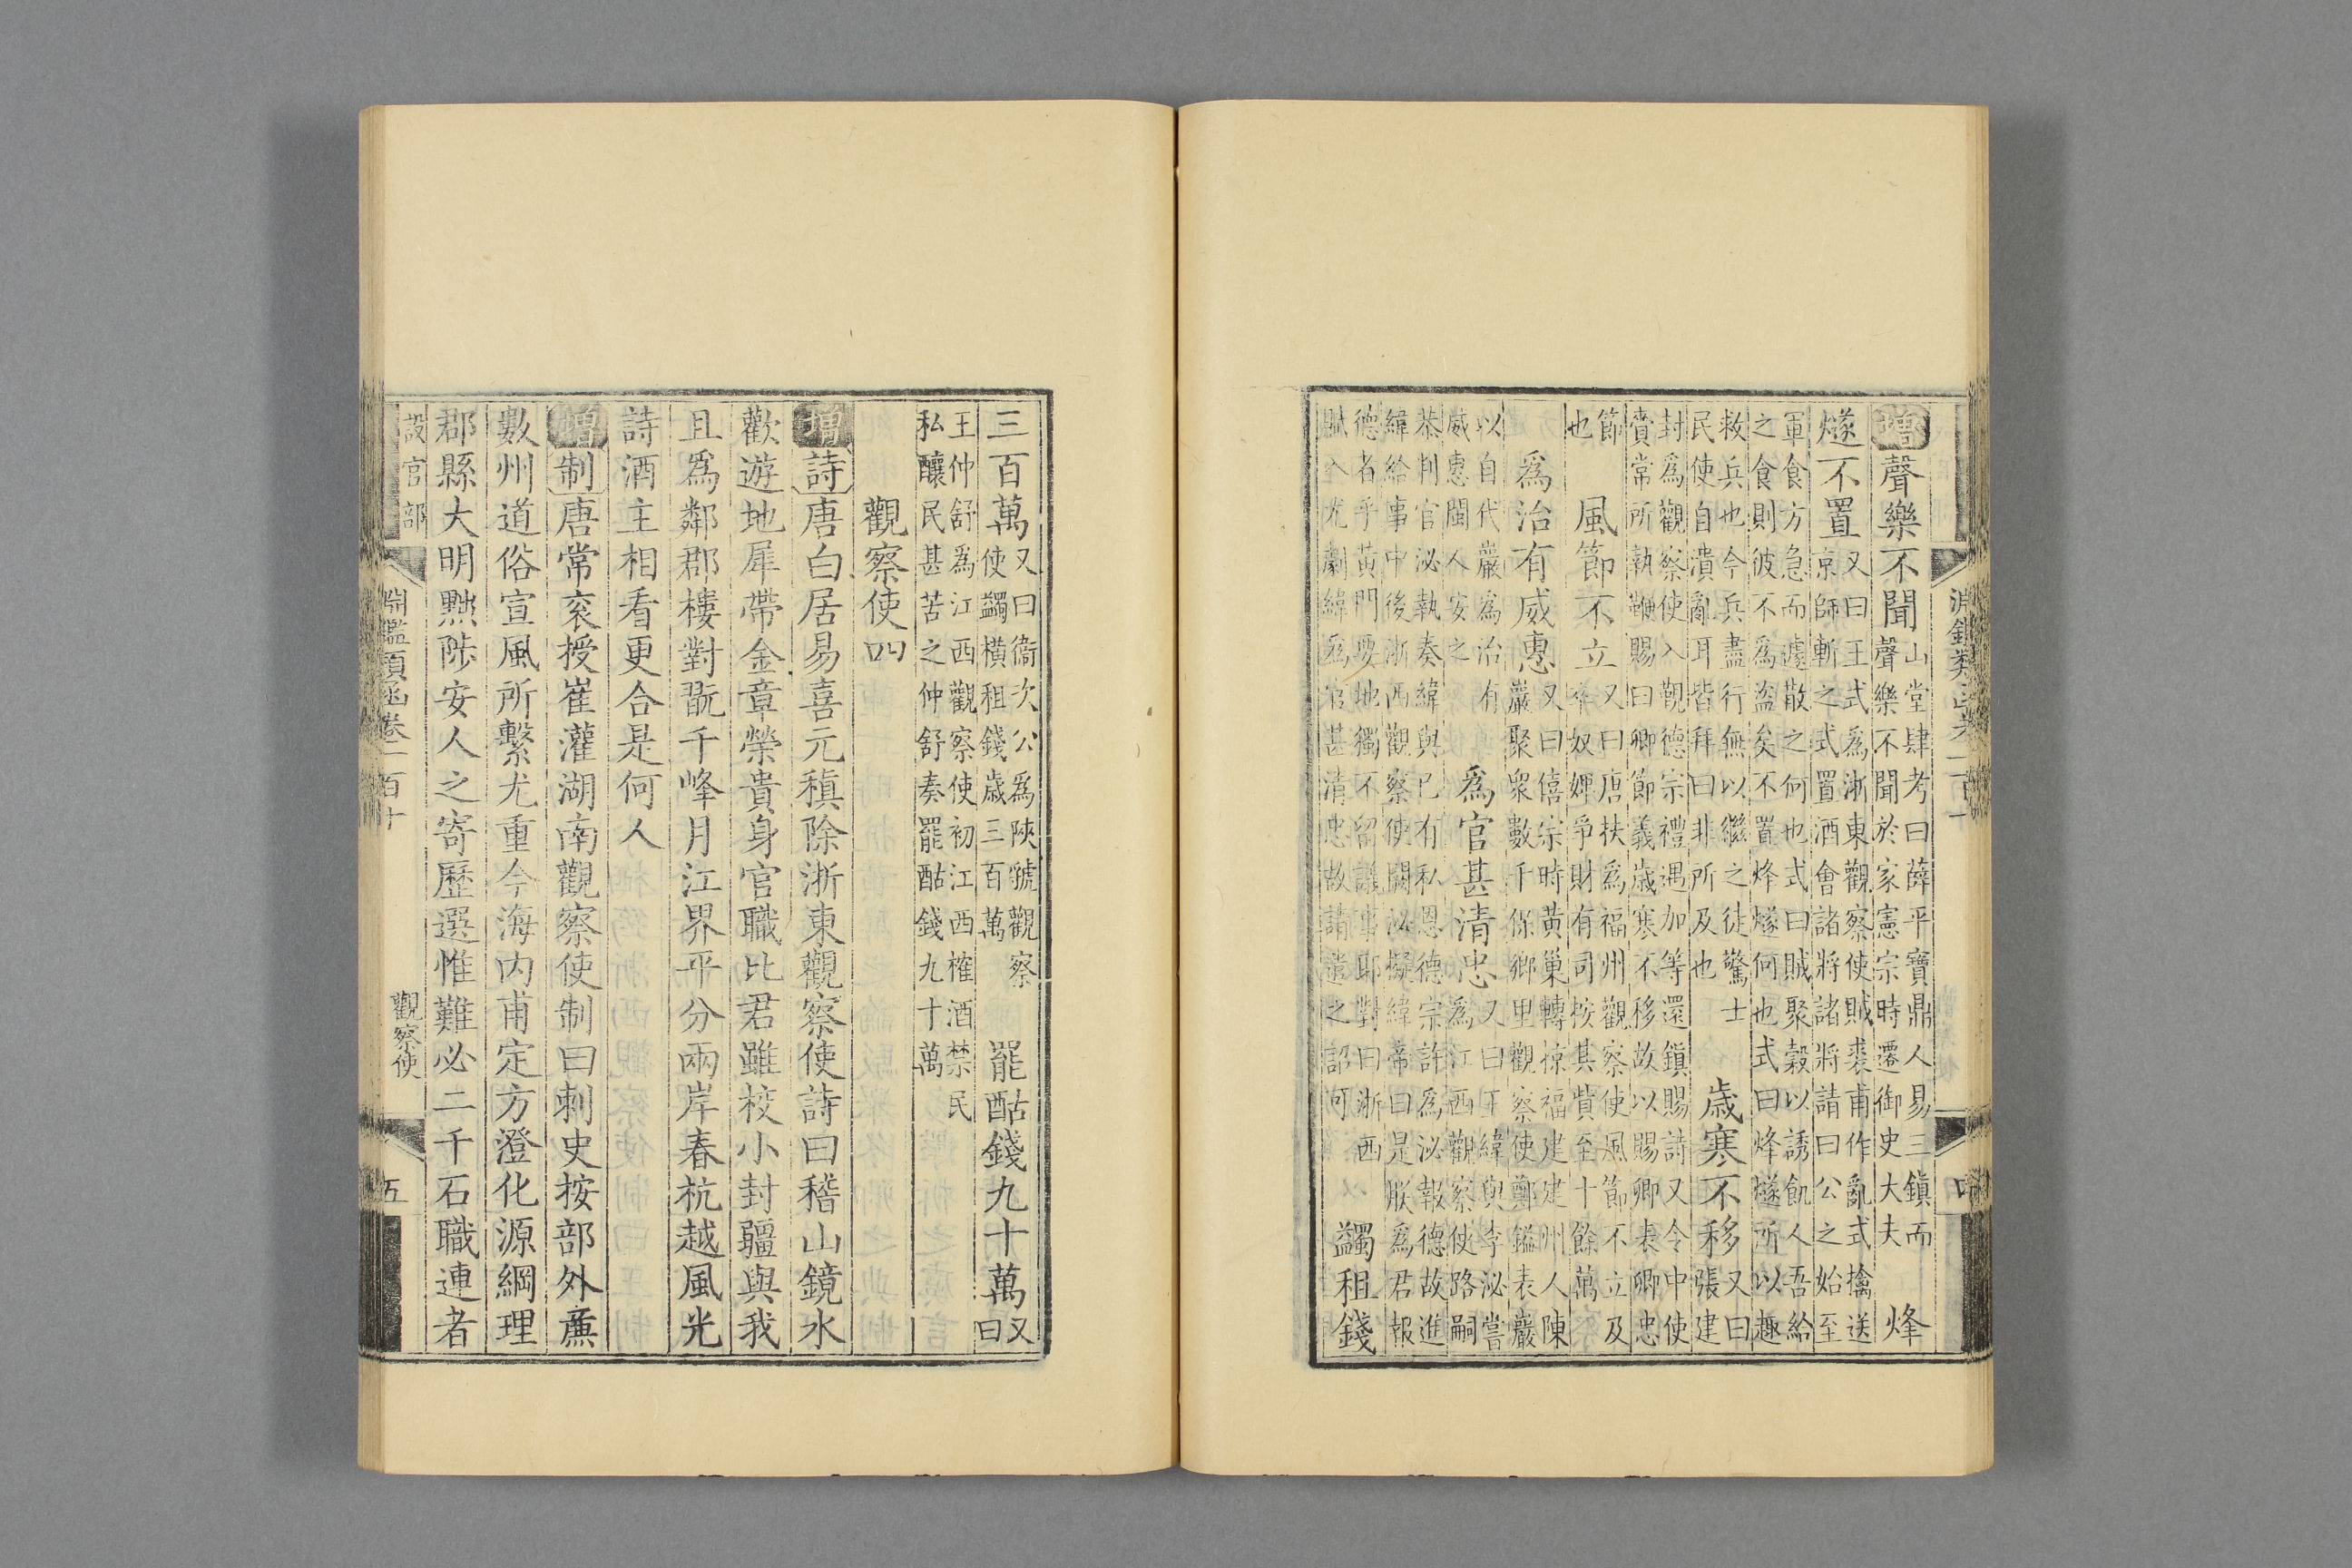 增聲樂不聞山堂肆考曰薛平寶鼎人易三鎮而聲樂不聞於家憲宗時遷御史大夫烽
燧不置又曰王式爲浙東觀察使賊裘甫作亂式擒送京師斬之式置酒會諸將諸將請曰公之始至
軍食方急而遽散之何也式曰賊聚穀以誘飢人吾給之食則彼不爲盜矣不置烽燧何也式曰烽燧所以趣
救兵也今兵盡行無以繼之徒驚士民使自潰亂耳皆拜曰非所及也歲寒不移又曰張建
封爲觀察使入觀德宗禮遇加等還鎮賜詩又令中使賫常所執鞭賜曰卿節義歲寒不移故以賜卿表卿忠
節也風節不立又曰唐扶爲福州觀察使風節不立及卒奴婢爭財有司按其貲至十餘萬
爲治有威惠又曰僖宗時黃巢轉掠福建建州人陳巖聚衆數千保鄉里觀察使鄭鎰表巖
以自代巖爲治有威惠閩人安之爲官甚清忠又曰王緯與李泌嘗爲江西觀察使路嗣
恭判官泌執奏緯與己有私恩德宗許爲泌報德故進緯給事中後浙西觀察使闕泌擬緯帝曰是朕爲君報
德者乎黃門要地獨不留議事耶對曰浙西賦入尤劇緯爲官甚清忠故請遣之詔可蠲租錢
淵鑑類函卷二百十
四
三百萬又曰衛次公爲陝虢觀察使蠲橫租錢歲三百萬罷酤錢九十萬又曰
王仲舒爲江西觀察使初江西榷酒禁民私釀民甚苦之仲舒奏罷酤錢九十萬
觀察使四
增詩唐白居易喜元稹除浙東觀察使詩曰稽山鏡水
歡遊地犀帶金章榮貴身官職比君雖校小封疆與我
且爲鄰郡樓對翫千峰月江界平分兩岸春杭越風光
詩酒主相看更合是何人
增制唐常袞授崔灌湖南觀察使制曰刺史按部外薦
數州道俗宣風所繫尤重今海內甫定方澄化源綱理
郡縣大明黜陟安人之寄歷選惟難必二千石職連者
設官部
淵鑑類函卷二百十
觀察使
五